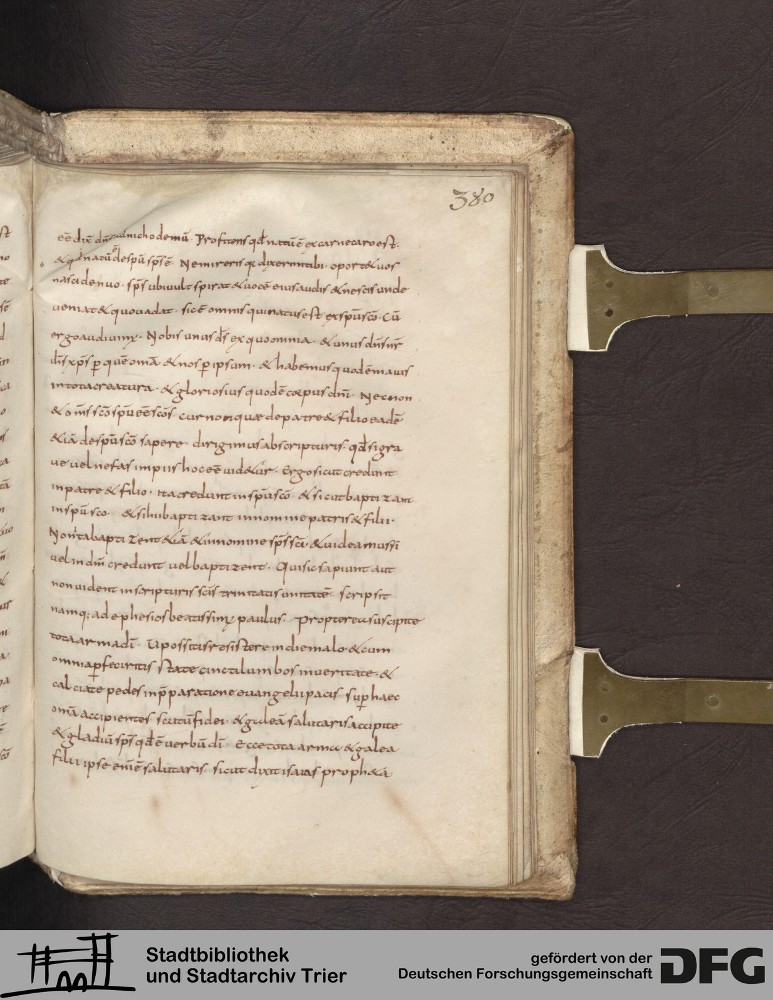 380
eē dix̄ dn̄s adnichodemū. Profitens qd̄ natū ē ex carne caro est.
& qd̄ natū ē de sp̄u sp̄s ē. Nemireris q dixerim tibi. oport& vos
nasci denuo. sp̄s ubi uult spirat & uocē eius audis & nescis unde
ueniat & quo uadat. sic ē omnis qui natus est ex sp̄u sc̄o. Cū
ergo audiuim;. Nobis unus d̄s ex quo omnia. & unus dn̄s nr̄
ih̄s xp̄s ꝑ quē om̄a & nos ꝑ ipsum. & habemus quodē maius
in tota creatura. & gloriosius quod ē corpus dn̄i. Nec non
& om̄s sc̄o sp̄u eē sc̄os. cur non quae de patre & filio eadē
&iā de sp̄u sc̄o sapere. dirigimus ab scripturis. qd̄ si gra
ue uel nefas impiis hoc eē uid&ur. Ergo sicut credunt
in patre & filio. ita credunt in sp̄u sc̄o. & sicut baptizant
in sp̄u sc̄o. & si hi baptizant in nomine patris & filii.
Non ita baptizent &iā & in nomine sp̄s sc̄i. & uideamus si
uel in dn̄m credunt uel baptizent. Qui sic sapiunt aut
non uident in scripturis sc̄is trinitatis unitatē. scripsit
namq; ad ephesios beatissim; paulus. Propterea suscipite
tota arma dī. Ut possitis resistere in die malo & cum
omnia ꝑfeceritis state cincti lumbos in ueritate. &
calciate pedes in p̄paratione euangelii pacis. sup̄ haec
om̄a accipientes scutū fidei. & galeā salutaris accipite
& gladiū sp̄s qd̄ ē uerbū dī. Ecce tota arma & galea
filii ipse enī ē salutaris. sicut dixit isaias proph&a
Stadtbibliothek
und Stadtarchiv Trier
gefördert von der
Deutschen Forschungsgemeinschaft DFG